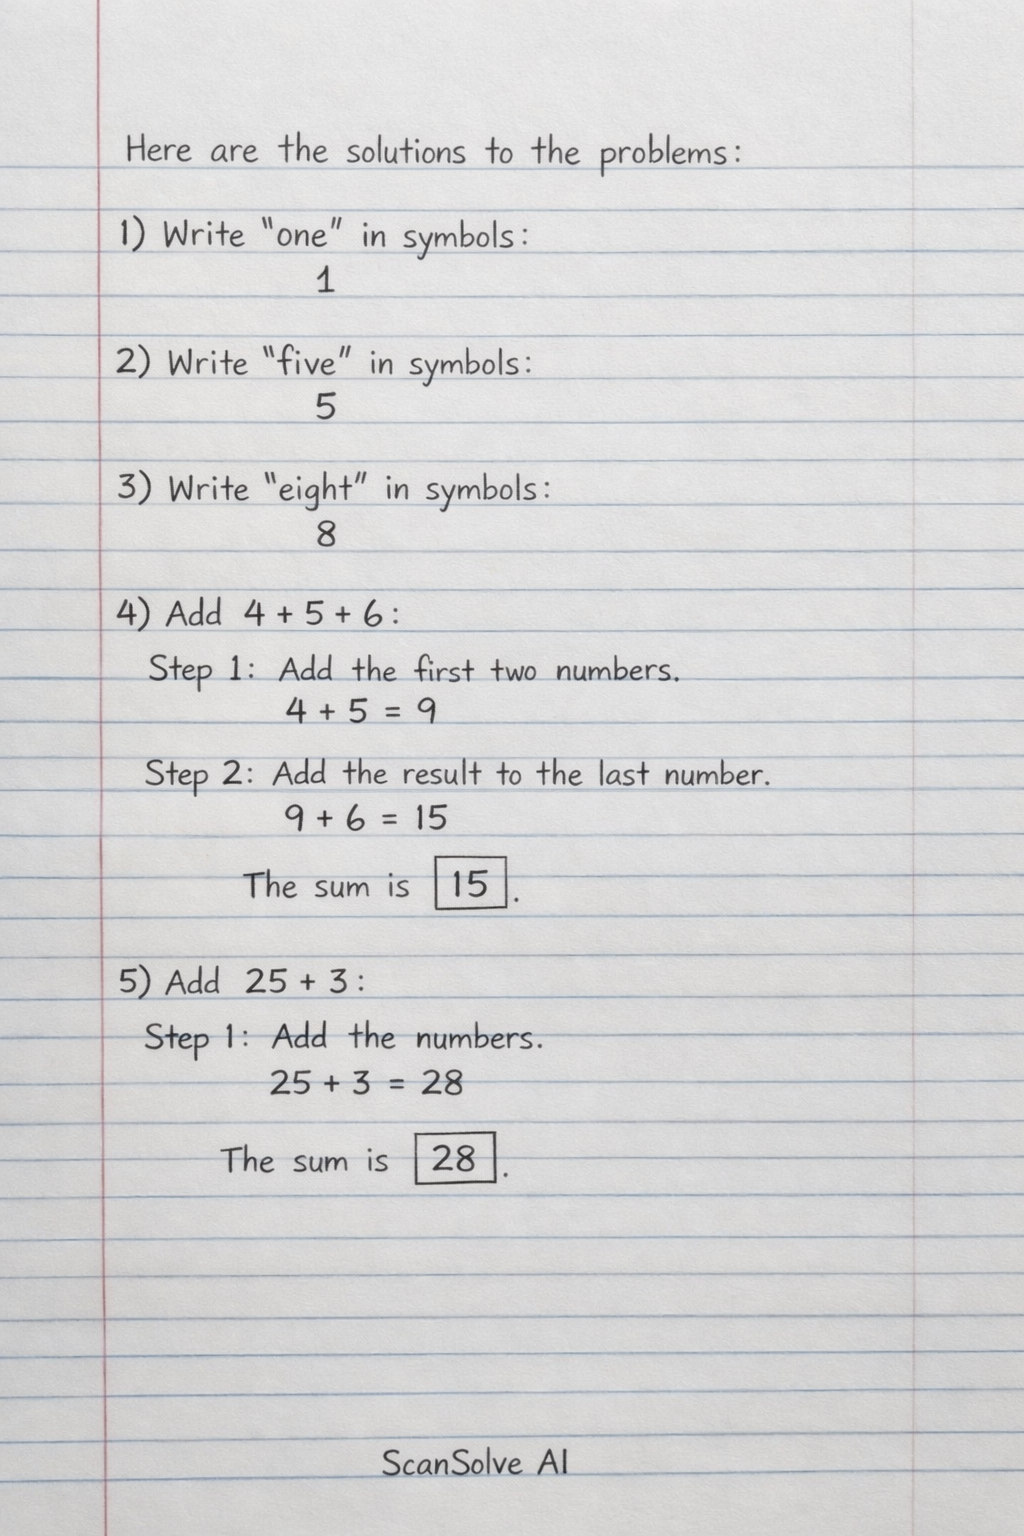 Here are the solutions to the problems:
1) Write "one" in symbols:
1
2) Write "five" in symbols:
5
3) Write "eight" in symbols:
8
4) Add 4 + 5 + 6:
Step 1: Add the first two numbers.
4 + 5 = 9
Step 2: Add the result to the last number.
9 + 6 = 15
The sum is 15.
5) Add 25 + 3:
Step 1: Add the numbers.
25 + 3 = 28
The sum is 28.
ScanSolve AI